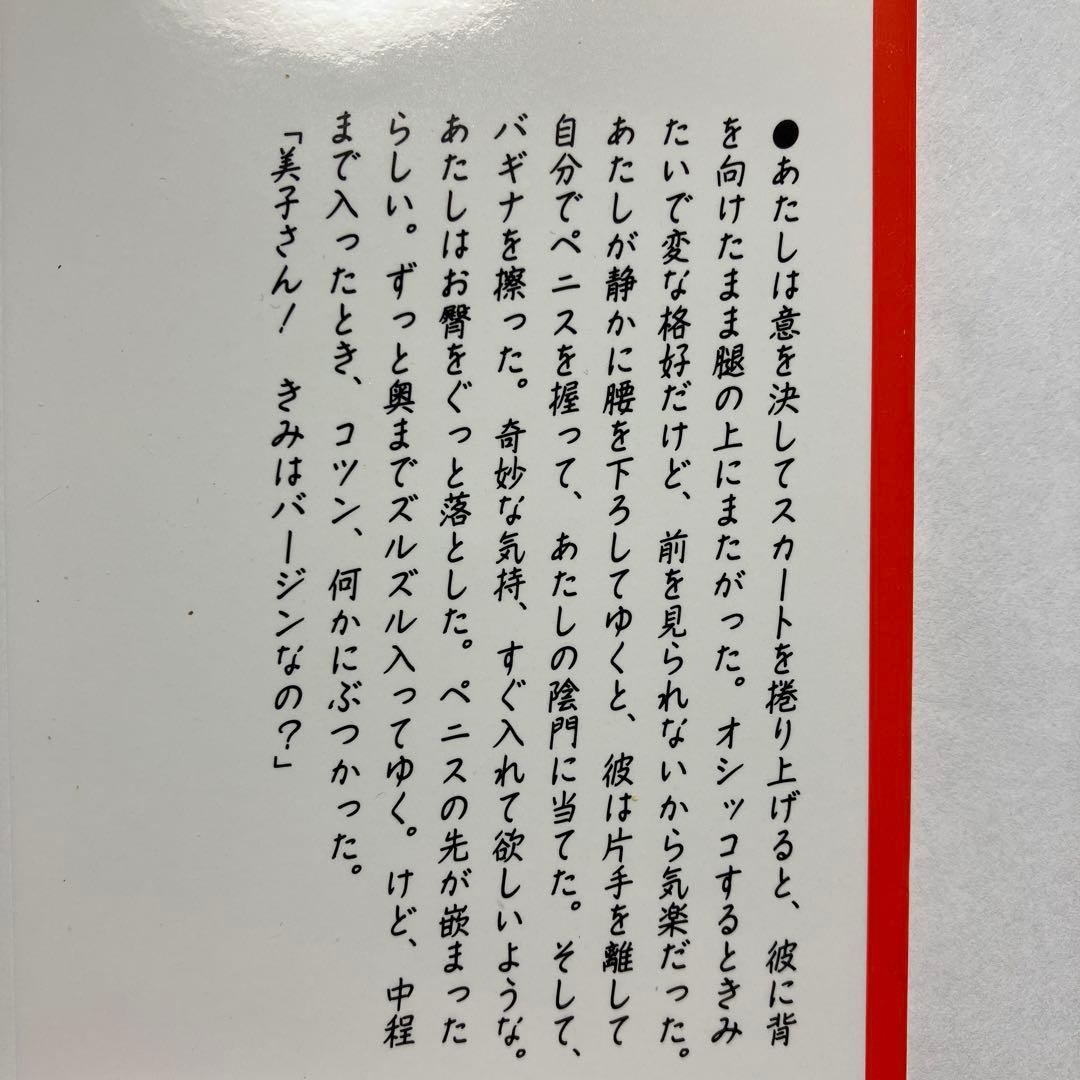 ●あたしは意を決してスカートを捲り上げると、彼に背
を向けたまま腿の上にまたがった。オシッコするときみ
たいで変な格好だけど、前を見られないから気楽だった。
あたしが静かに腰を下ろしてゆくと、彼は片手を離して
自分でペニスを握って、あたしの陰門に当てた。そして、
バギナを擦った。奇妙な気持、すぐ入れて欲しいような。
あたしはお臀をぐっと落とした。ペニスの先が嵌まった
らしい。ずっと奥までズルズル入ってゆく。けど、中程
まで入ったとき、コツン、何かにぶつかった。
「美子さん！　きみはバージンなの？」